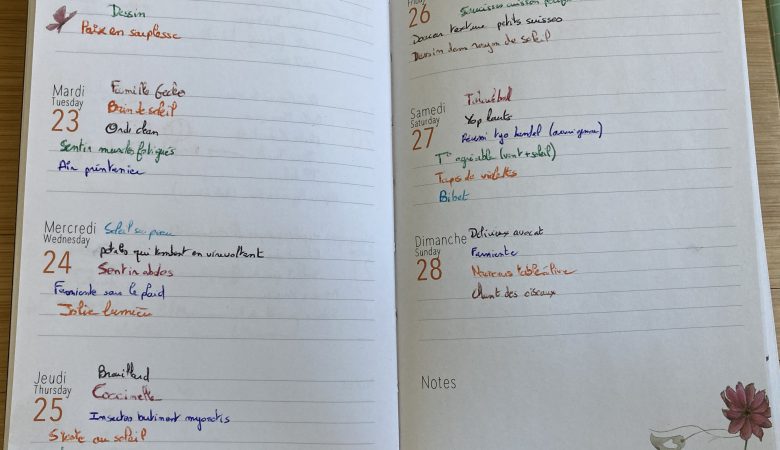 Dessin
Paix en souplesse
Mardi
Tuesday
23
Famille Gecko
Brin de soleil
Ordi clean
Sentir muscles fatigués
Air printanier
Mercredi
Wednesday
24
Soleil sur peau
pétales qui tombent en virevoltant
Sentir abdos
Farniente sous le plaid
Jolie lumière
Jeudi
Thursday
25
Brouillard
Coccinelle
Insectes butinant myosotis
Sieste au soleil
26
Saucisses cuisson
Douceur texture petits suisses
Dessin dans rayon de soleil
Samedi
Saturday
27
Yop
Réussi
T° agréable (vent + soleil)
Tapis de violettes
Dimanche
Sunday
28
Délicieux avocat
Farniente
Chant des oiseaux
Notes